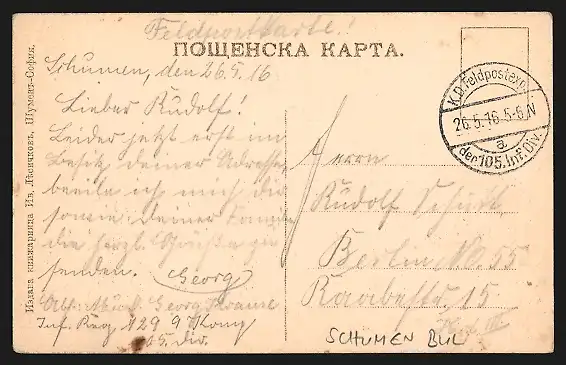 Feldpostkarte!
ПОЩЕНСКА КАРТА.
Schumen, den 26.5.16
Lieber Rudolf!
Leider jetzt erst im
Besitz deiner Adresse,
beeile ich mich dir
sowie deiner Familie
die herzl. Grüße zu
senden. Georg
Georg Krause
Inf. Reg 129 9 Komp
105. Div.
K.D. Feldpostexp.
26.5.16.5-6N
a.
der 105. Inf. Div.
Herrn
Rudolf
Berlin No. 55
Raabestr. 15
SCHUMEN BUL
Издава книжарница Ив. Лѣсичковъ, Шуменъ-София.